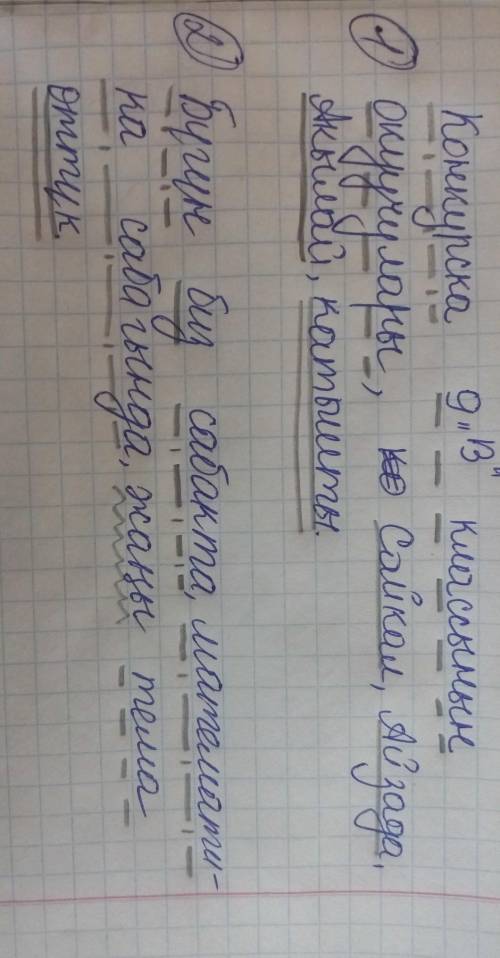 ① Конкурска 9 „В" классынын
окуучулары, Сайкал, Айзада,
Акылай, катышты.
② Бүгүн биз сабакта, математи-
ка сабагында, жаңы тема
өттүк